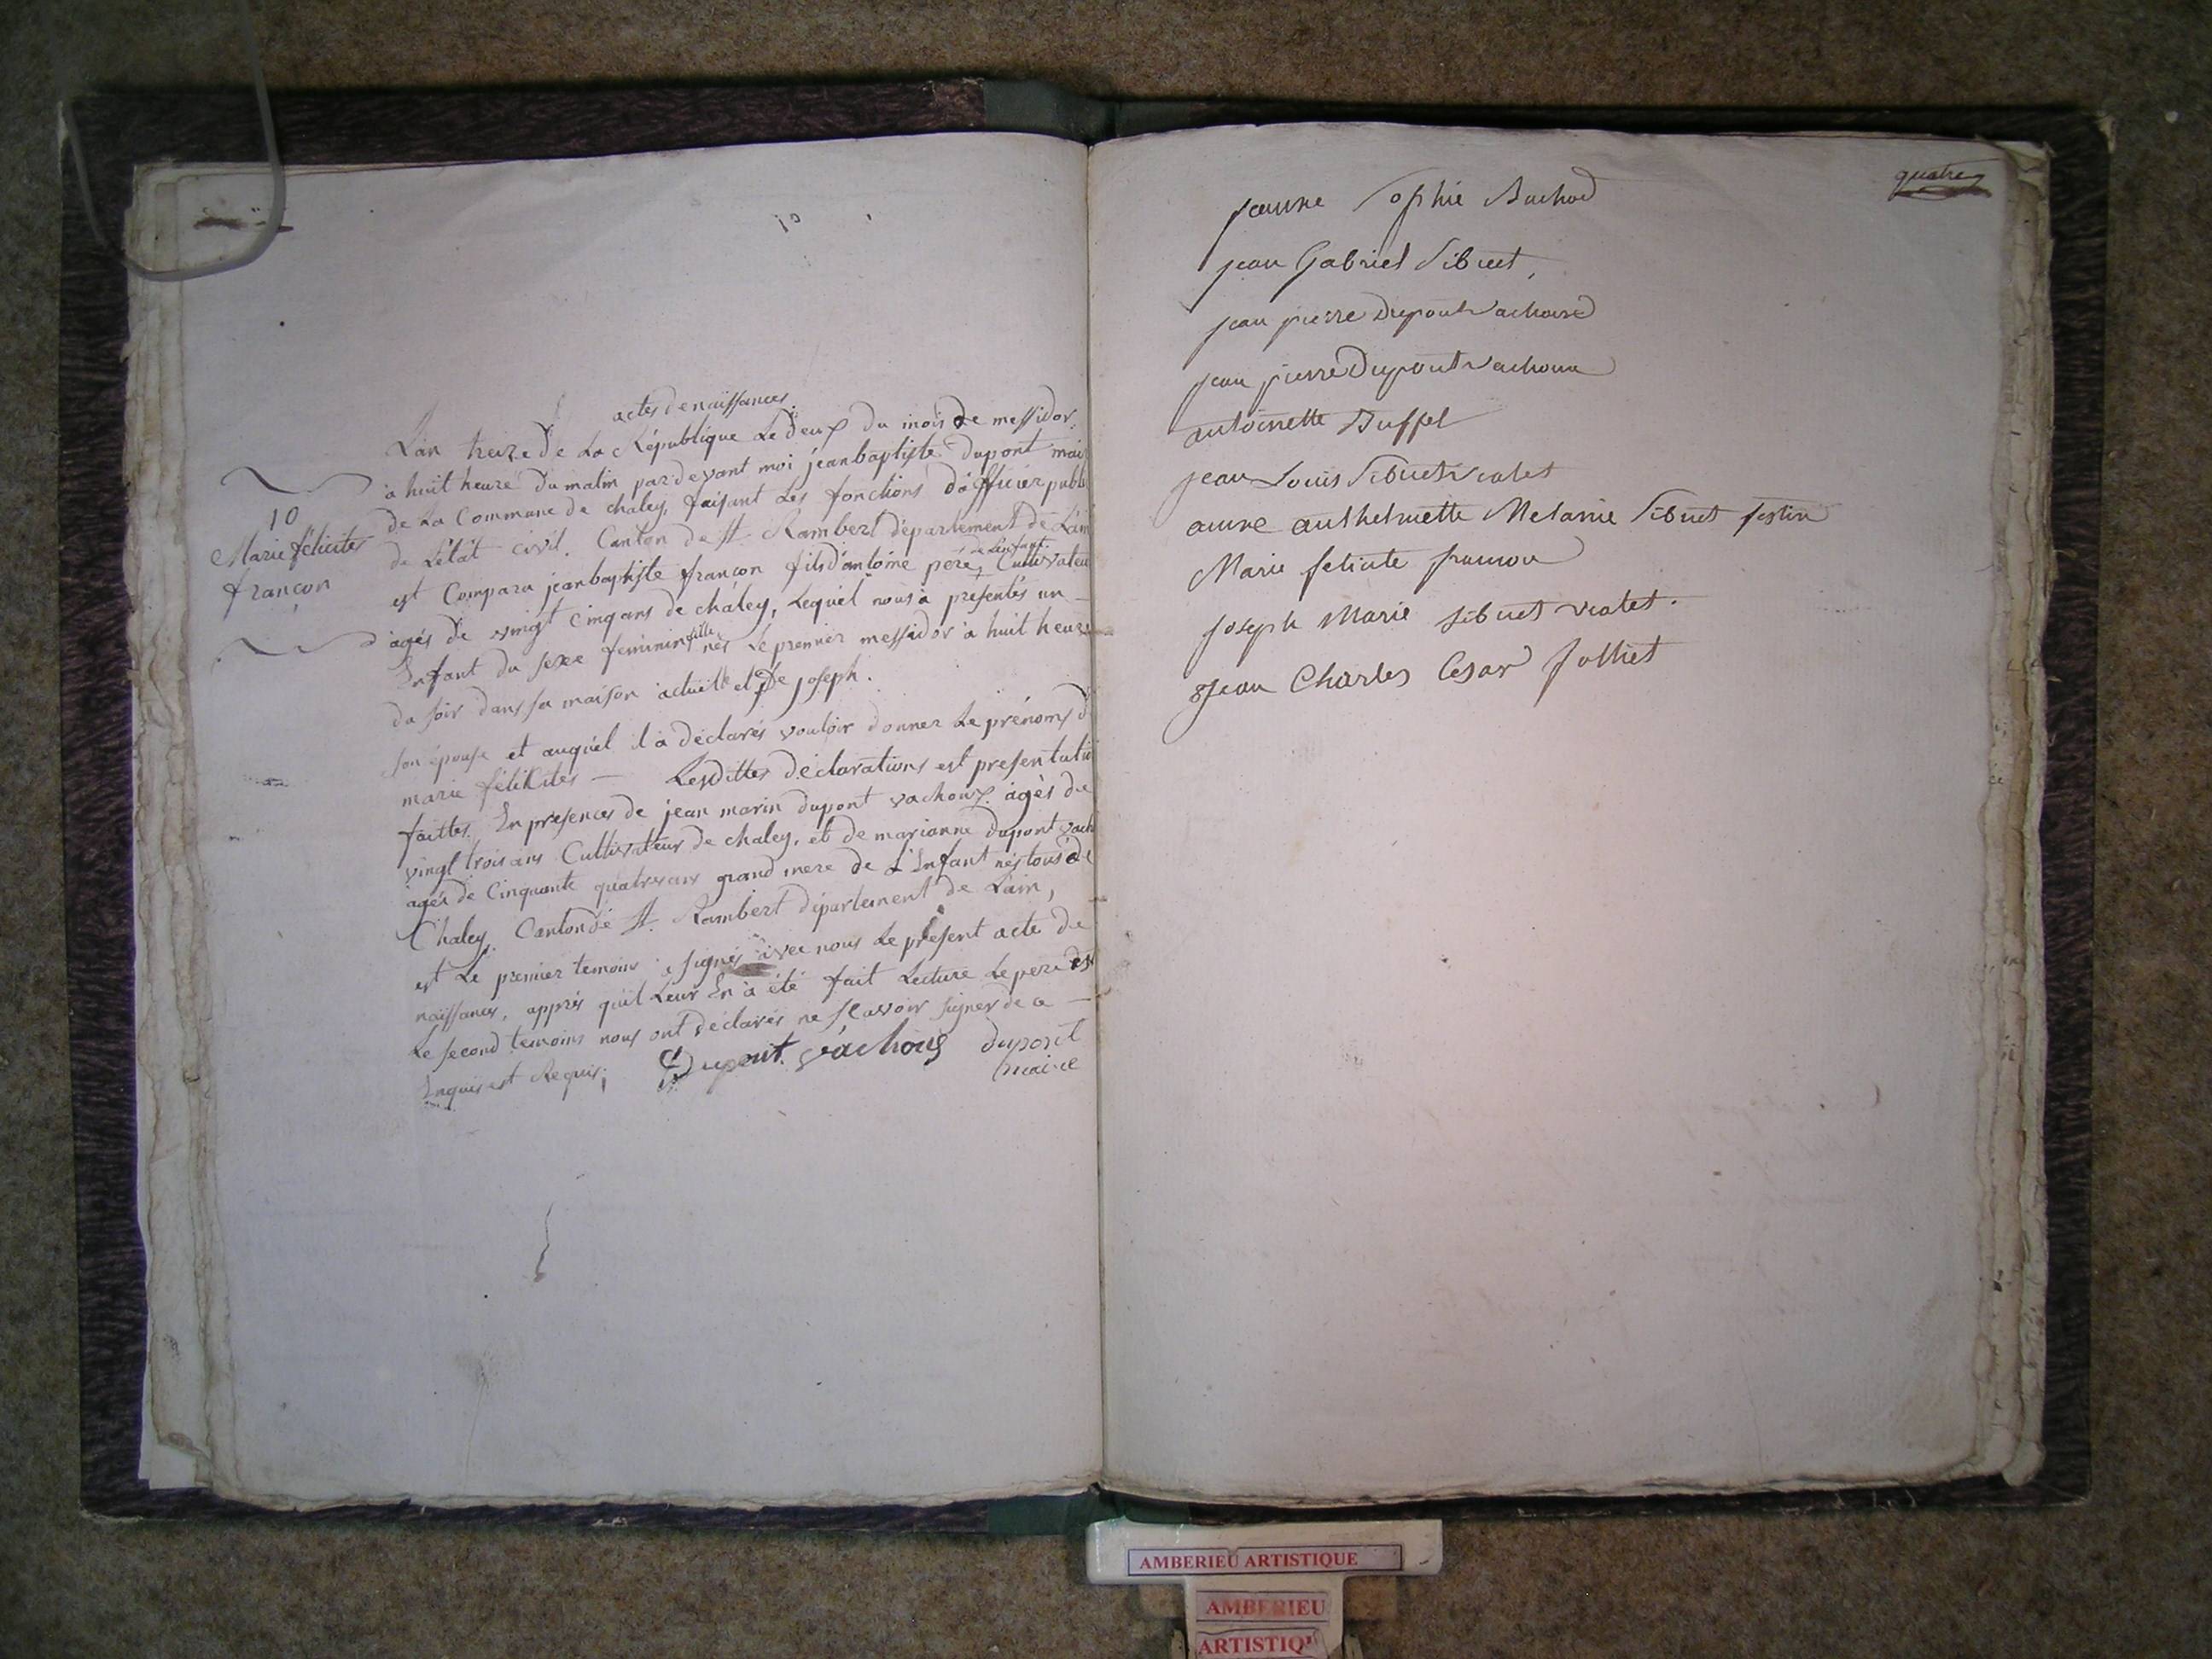 10
actes denaissances
L'an treize De La République Le Deux du mois de messidor,
à huit heure Du matin pardevant moi jeanbaptiste Dupont mai
de La Commune de chaley, faisant Les fonctions d'officier publi
de L'état civil. Canton de St. Rambert département de L'ain
est Comparu jeanbaptiste françon fils d'antoine pere de L'enfant Cultivateu
agés de vingt cinq ans de chaley, Lequel nous à présentés un
Enfant du sexe feminin fille nés Le premier messidor à huit heure
du soir dans sa maison actuelle et De joseph.
son épouse et auquel il à déclarés vouloir donner Le prénoms d
marie félicités — Lesdittes déclarations est présentatio
faittes. En présences de jean marin dupont vachoux agés de
vingt trois ans Cultivateur de chaley, et de marianne dupont vach
agés de Cinquante quatre ans grand mere de L'Enfant nés tous de
Chaley. Canton de St. Rambert département de L'ain,
est Le premier temoins signés avec nous Le présent acte de
naissances, apprés qu'il Leur En à été fait Lecture Le pere est
Le second temoins nous ont déclarés ne sçavoir signer de a
Enquis est Requis;
Dupont vachoux dupont
maire
10
Marie félicités
françon
quatre
jeanne Sophie Bachod
jean Gabriel Sibuet,
jean pierre Dupont vachoux
jean pierre Dupont vachoux
antoinette Buffet
jean Louis Sibuet viatet
anne anthelmette Melanie Sibuet festin
Marie felicite françon
joseph Marie Sibuet viatet.
jean Charles Cesar Jolliet
AMBERIEU ARTISTIQUE
AMBERIEU
ARTISTIQ'